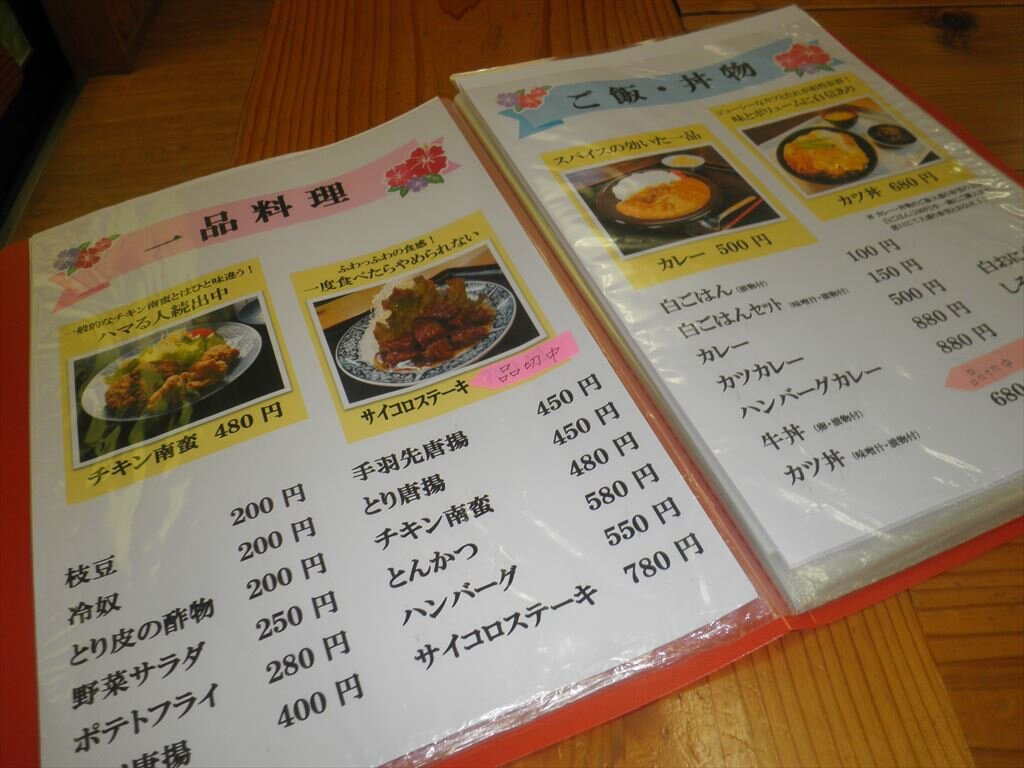 一品料理
一般的なチキン南蛮とはひと味違う!
ハマる人続出中
チキン南蛮 480円
ふわっふわの食感!
一度食べたらやめられない
サイコロステーキ
品切中
枝豆 200円
冷奴 200円
とり皮の酢物 200円
野菜サラダ 250円
ポテトフライ 280円
唐揚 400円
手羽先唐揚 450円
とり唐揚 450円
チキン南蛮 480円
とんかつ 580円
ハンバーグ 550円
サイコロステーキ 780円
ご飯・丼物
スパイスの効いた一品
カレー 500円
ジューシーなカツとたれが相性抜群!
味とボリュームに自信あり
カツ丼 680円
白ごはん (漬物付) 100円
白ごはんセット (味噌汁・漬物付) 150円
カレー 500円
カツカレー 880円
ハンバーグカレー 880円
牛丼 (卵・漬物付)
カツ丼 (味噌汁・漬物付) 680
白おに